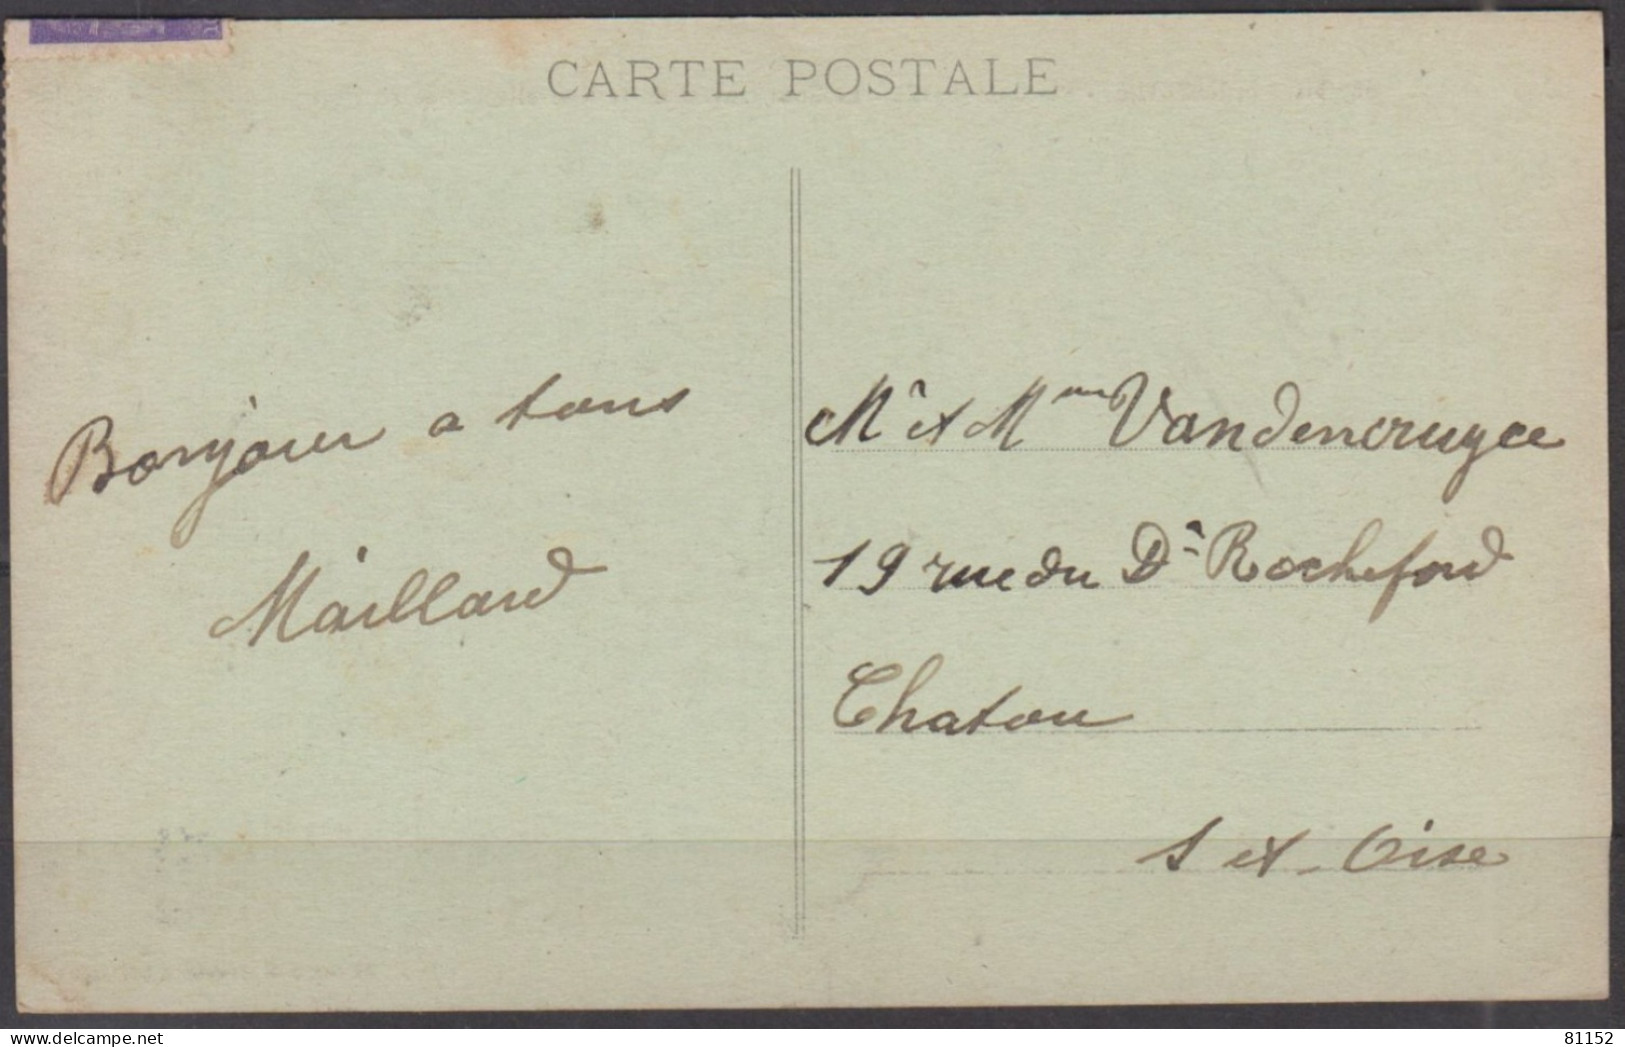 CARTE POSTALE
Bonjour a tous
Maillard
Mr et Mme Vandencruyce
19 rue du Dr Rocheford
Chatou
S et Oise
delcampe.net
81152